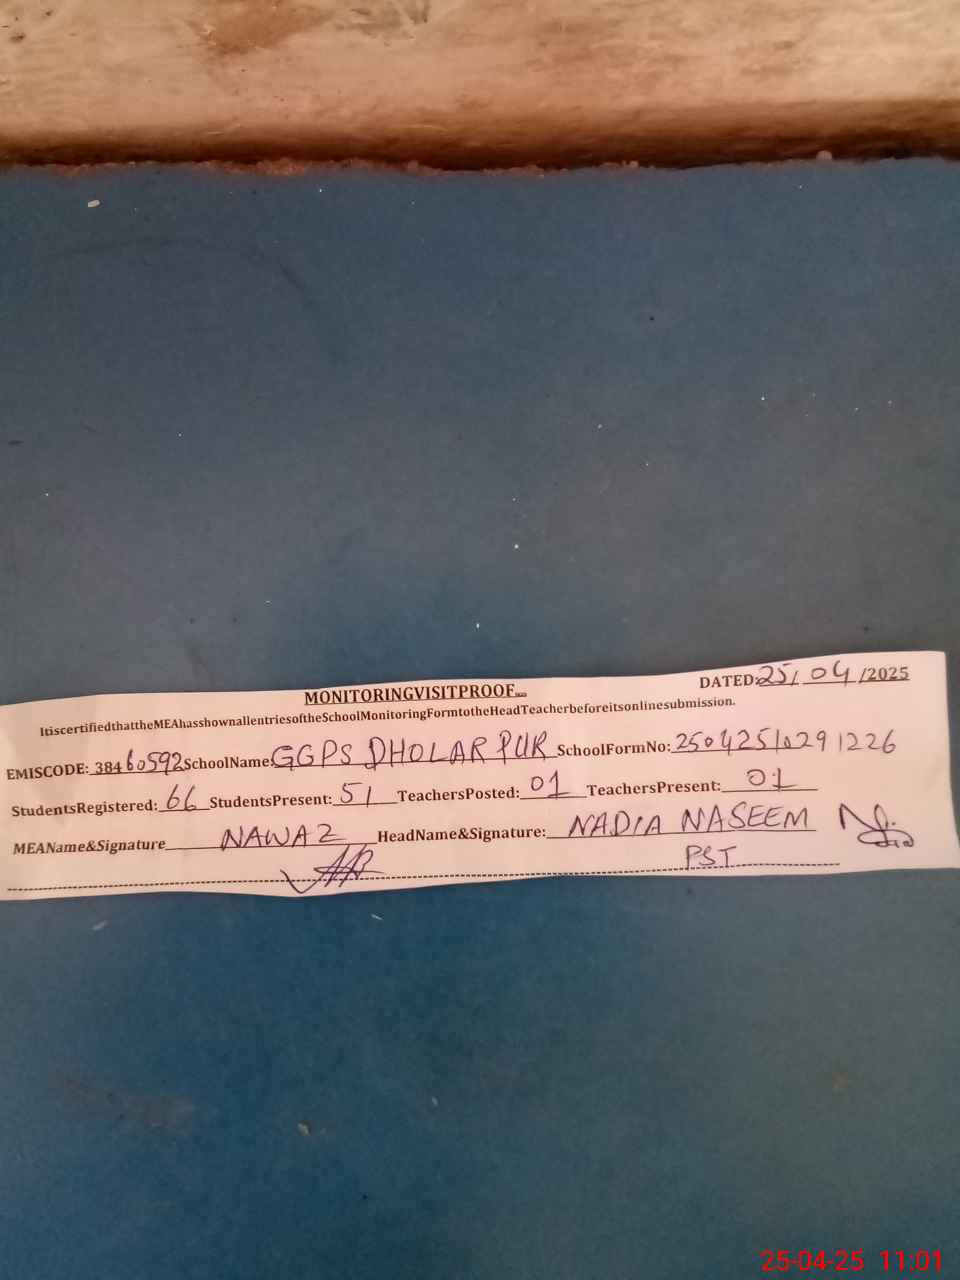 MONITORINGVISITPROOF
DATED:25/04/2025
ItiscertifiedthattheMEAhasshownallentriesoftheSchoolMonitoringFormtotheHeadTeacherbeforeitsonlinesubmission.
EMISCODE: 38460592SchoolName:GGPS DHOLAR PUR SchoolFormNo: 25042510291226
StudentsRegistered: 66 StudentsPresent: 51 TeachersPosted: 01 TeachersPresent: 01
MEAName&Signature NAWAZ HeadName&Signature: NADIA NASEEM
PST
25-04-25 11:01